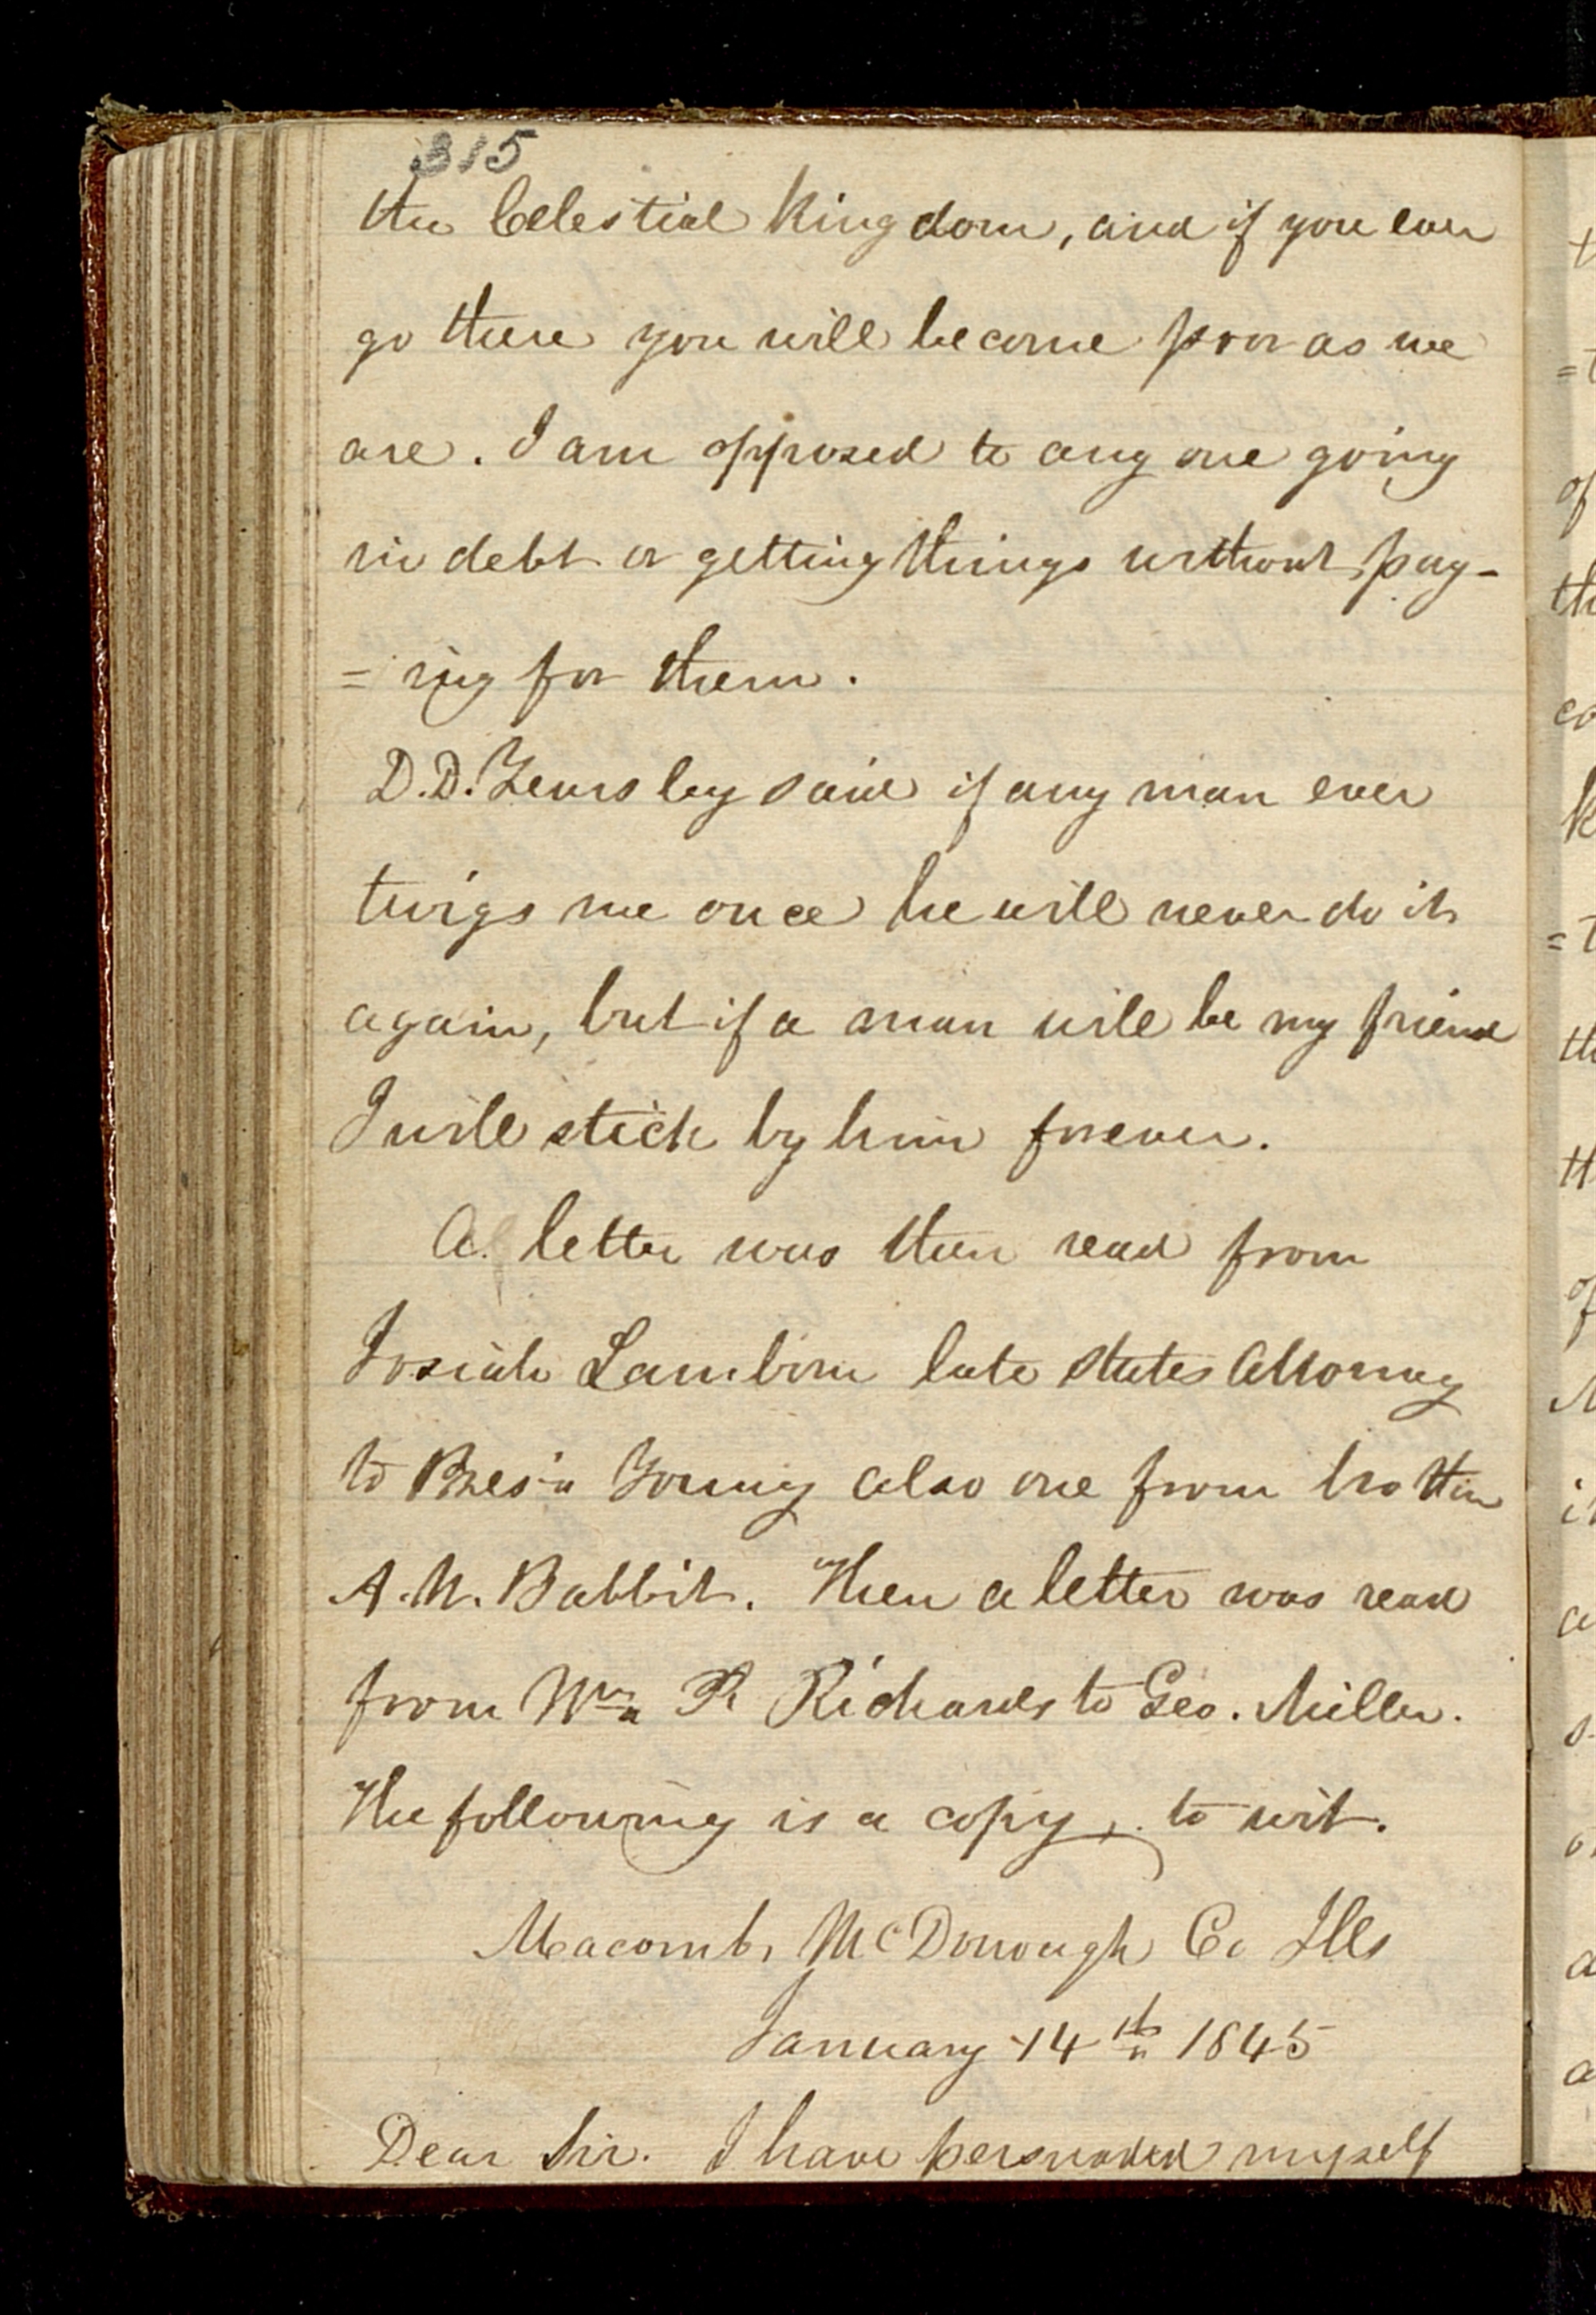 315
the Celestial Kingdom, and if you ever
go there you will become poor as we
are. I am opposed to any one going
in debt or getting things without pay-
=ing for them.
D.D. Yearsley said if any man ever
twigs me once he will never do it
again, but if a man will be my friend
I will stick by him forever.
A letter was then read from
Josiah Lamborn late states Attorney
to Pres't Young also one from brother
A.W. Babbit. Then a letter was read
from Wm P Richards to Geo. Miller.
The following is a copy, to wit.
Macomb, McDonough Co Ills
January 14th 1845
Dear Sir. I have persuaded myself